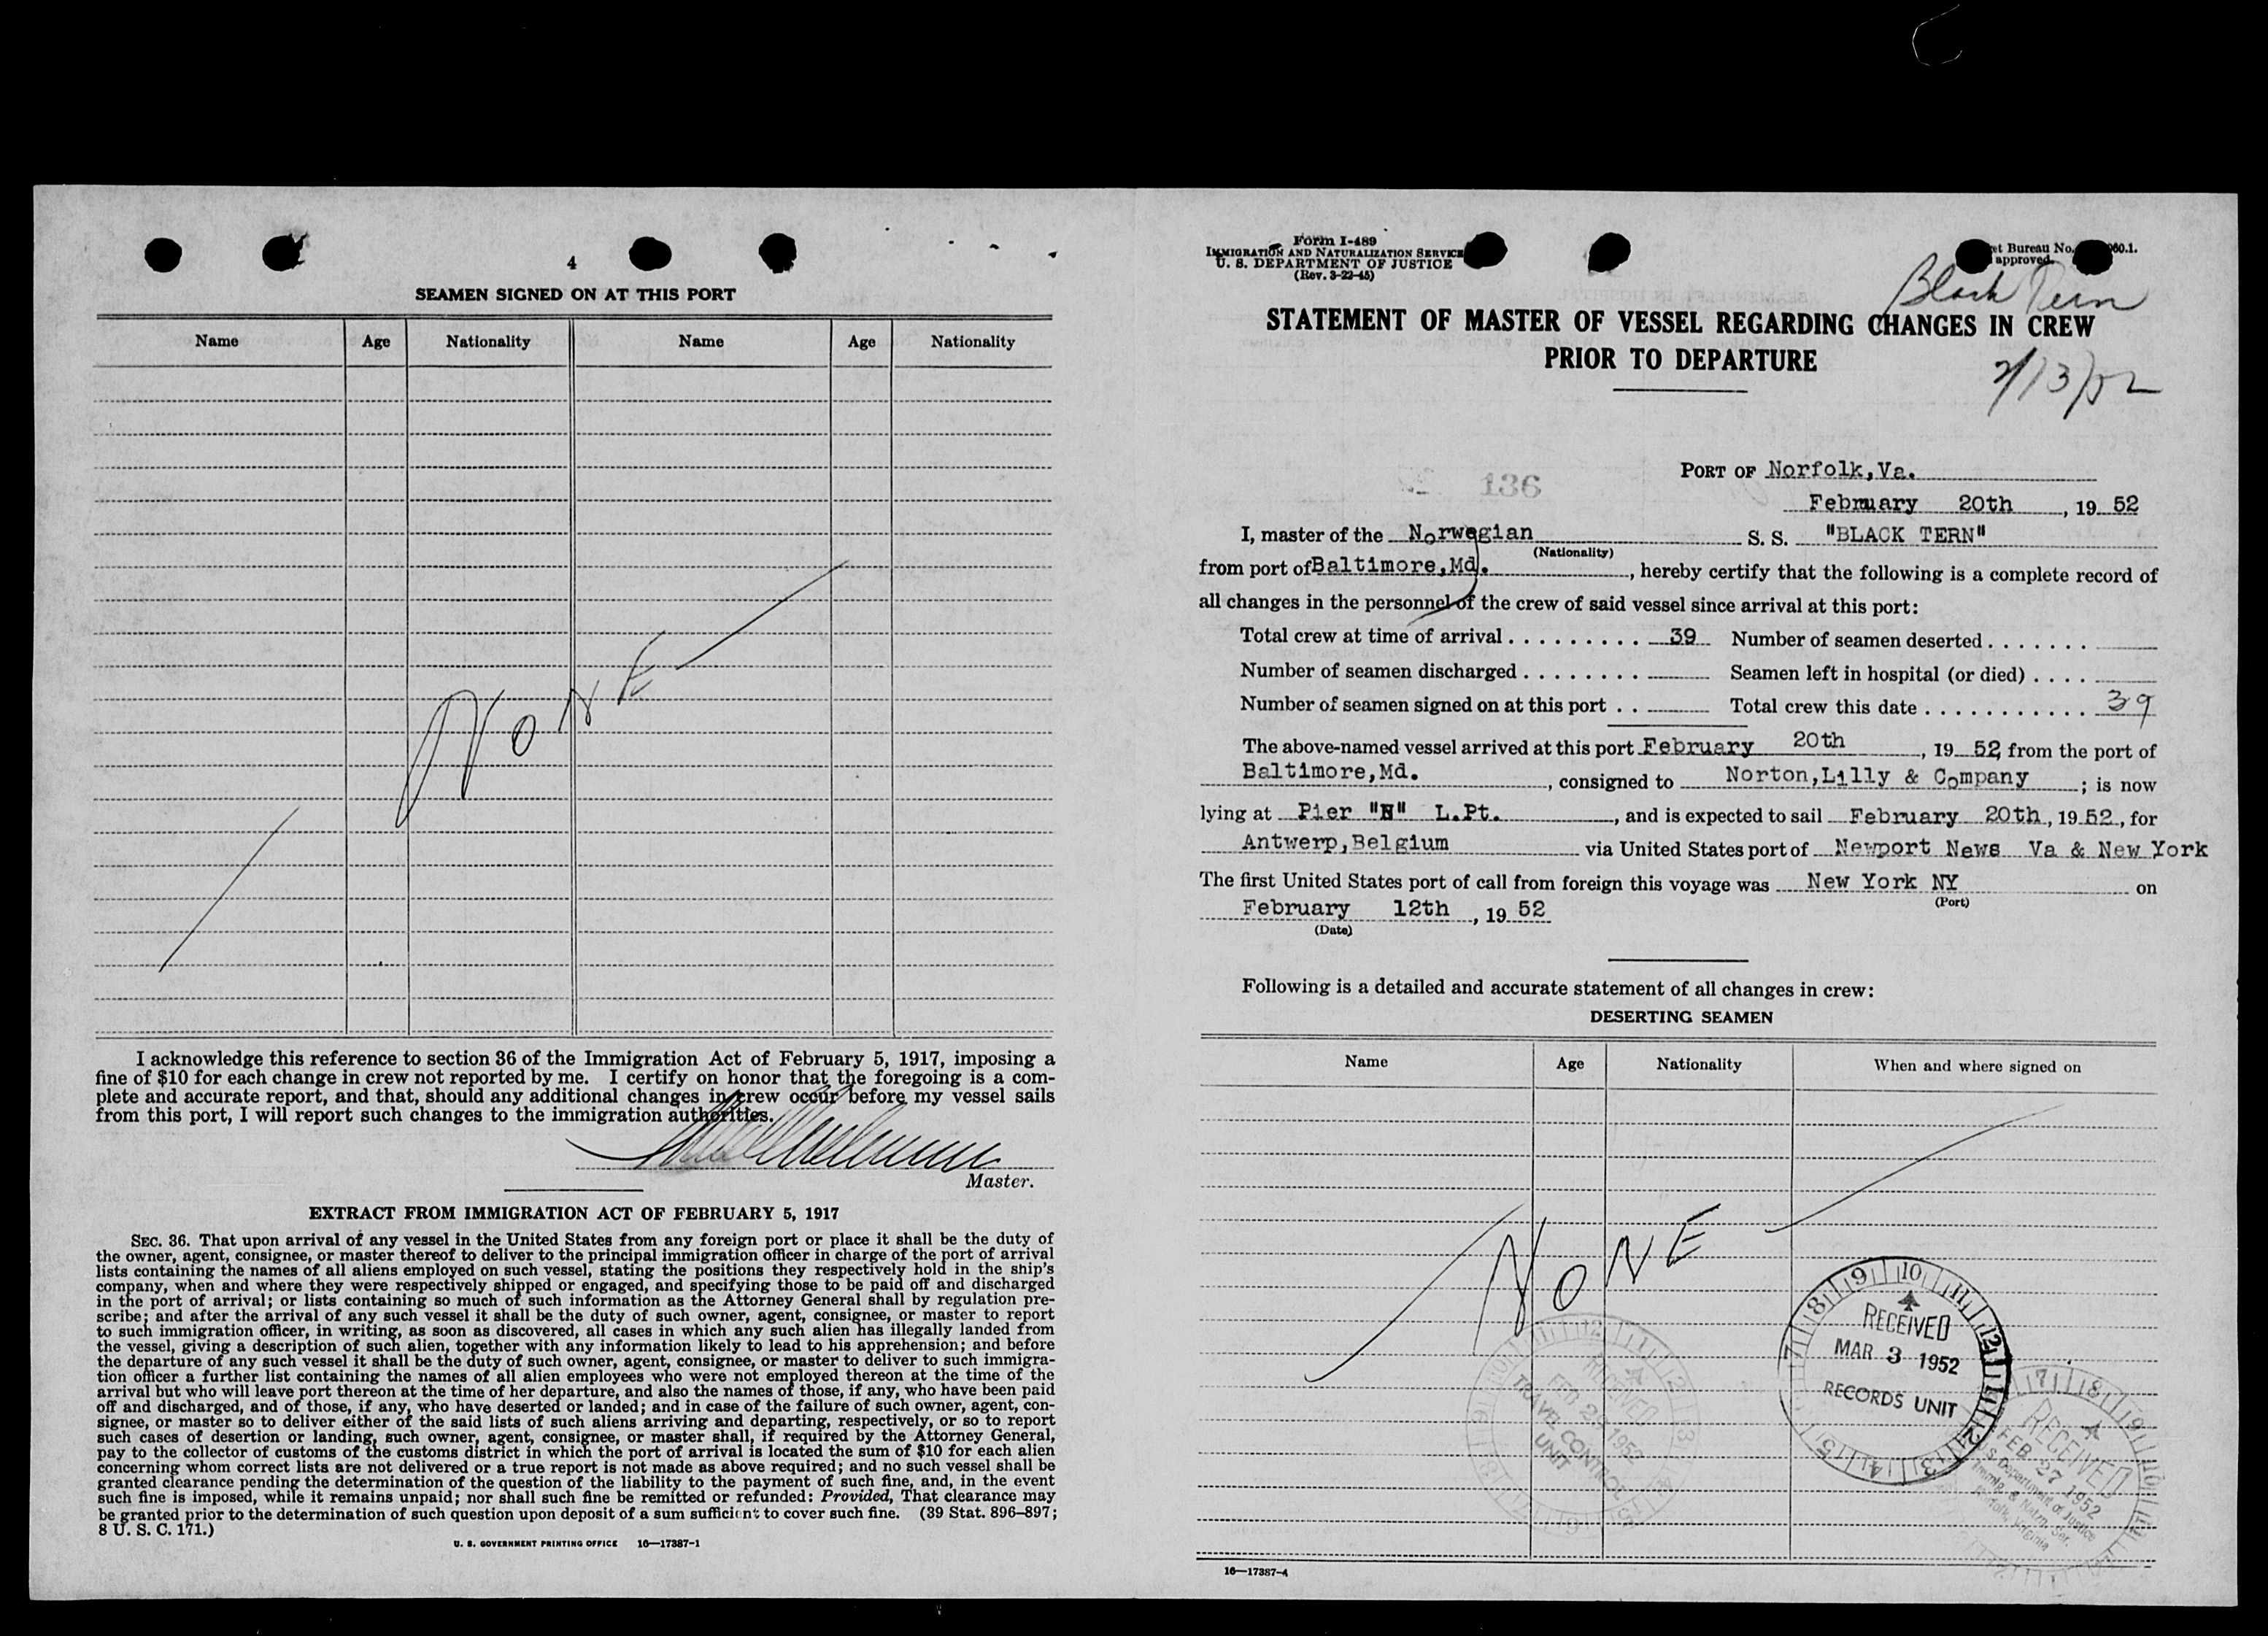 4
SEAMEN SIGNED ON AT THIS PORT
Name Age Nationality Name Age Nationality
NONE
I acknowledge this reference to section 36 of the Immigration Act of February 5, 1917, imposing a
fine of $10 for each change in crew not reported by me. I certify on honor that the foregoing is a com-
plete and accurate report, and that, should any additional changes in crew occur before my vessel sails
from this port, I will report such changes to the immigration authorities.
Master.
EXTRACT FROM IMMIGRATION ACT OF FEBRUARY 5, 1917
SEC. 36. That upon arrival of any vessel in the United States from any foreign port or place it shall be the duty of
the owner, agent, consignee, or master thereof to deliver to the principal immigration officer in charge of the port of arrival
lists containing the names of all aliens employed on such vessel, stating the positions they respectively hold in the ship's
company, when and where they were respectively shipped or engaged, and specifying those to be paid off and discharged
in the port of arrival; or lists containing so much of such information as the Attorney General shall by regulation pre-
scribe; and after the arrival of any such vessel it shall be the duty of such owner, agent, consignee, or master to report
to such immigration officer, in writing, as soon as discovered, all cases in which any such alien has illegally landed from
the vessel, giving a description of such alien, together with any information likely to lead to his apprehension; and before
the departure of any such vessel it shall be the duty of such owner, agent, consignee, or master to deliver to such immigra-
tion officer a further list containing the names of all alien employees who were not employed thereon at the time of the
arrival but who will leave port thereon at the time of her departure, and also the names of those, if any, who have been paid
off and discharged, and of those, if any, who have deserted or landed; and in case of the failure of such owner, agent, con-
signee, or master so to deliver either of the said lists of such aliens arriving and departing, respectively, or so to report
such cases of desertion or landing, such owner, agent, consignee, or master shall, if required by the Attorney General,
pay to the collector of customs of the customs district in which the port of arrival is located the sum of $10 for each alien
concerning whom correct lists are not delivered or a true report is not made as above required; and no such vessel shall be
granted clearance pending the determination of the question of the liability to the payment of such fine, and, in the event
such fine is imposed, while it remains unpaid; nor shall such fine be remitted or refunded: Provided, That clearance may
be granted prior to the determination of such question upon deposit of a sum sufficient to cover such fine. (39 Stat. 896–897;
8 U. S. C. 171.)
U. S. GOVERNMENT PRINTING OFFICE 16—17387-1
Form I-489
IMMIGRATION AND NATURALIZATION SERVICE
U. S. DEPARTMENT OF JUSTICE
(Rev. 3-22-45)
et Bureau No. 060.1.
approved.
Black Tern
STATEMENT OF MASTER OF VESSEL REGARDING CHANGES IN CREW
PRIOR TO DEPARTURE
2/13/52
136
PORT OF Norfolk,Va.
February 20th, 19 52
I, master of the Norwegian S. S. "BLACK TERN"
(Nationality)
from port of Baltimore,Md., hereby certify that the following is a complete record of
all changes in the personnel of the crew of said vessel since arrival at this port:
Total crew at time of arrival . . . . . . . . . 39 Number of seamen deserted . . . . . . .
Number of seamen discharged . . . . . . . . Seamen left in hospital (or died) . . . .
Number of seamen signed on at this port . . Total crew this date . . . . . . . . . . . 39
The above-named vessel arrived at this port February 20th, 19 52, from the port of
Baltimore,Md., consigned to Norton,Lilly & Company; is now
lying at Pier "N" L.Pt., and is expected to sail February 20th, 19 52, for
Antwerp,Belgium via United States port of Newport News Va & New York
The first United States port of call from foreign this voyage was New York NY on
(Port)
February 12th, 19 52
(Date)
Following is a detailed and accurate statement of all changes in crew:
DESERTING SEAMEN
Name Age Nationality When and where signed on
NONE
RECEIVED
MAR 3 1952
RECORDS UNIT
RECEIVED
TRAVEL CONTROL
UNIT
RECEIVED
FEB 27 1952
U. S. Department of Justice
Immig. & Natzn. Ser.
Norfolk, Virginia
16—17387-4